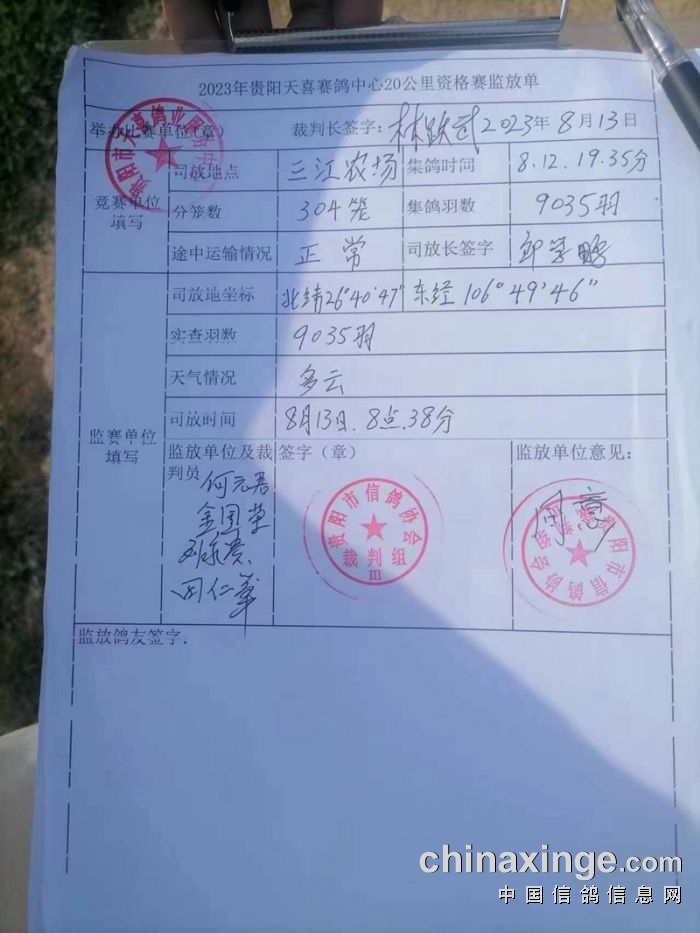 2023年贵阳天喜赛鸽中心20公里资格赛监放单
举办比赛单位(章) 裁判长签字: 林跃武 2023年8月13日
贵阳市天喜鸽业服务中心
竞赛单位填写
司放地点 三江农场 集鸽时间 8.12.19.35分
分笼数 304笼 集鸽羽数 9035羽
途中运输情况 正常 司放长签字
监赛单位填写
司放地坐标 北纬26°40'47" 东经106°49'46"
实查羽数 9035羽
天气情况 多云
司放时间 8月13日.8点.38分
监放单位及裁判员 签字(章) 监放单位意见:
何元君
金国荣
田仁华
贵阳市信鸽协会
裁判组
III
同意
贵阳市信鸽协会
监放鸽友签字:
chinaxinge.com
中国信鸽信息网